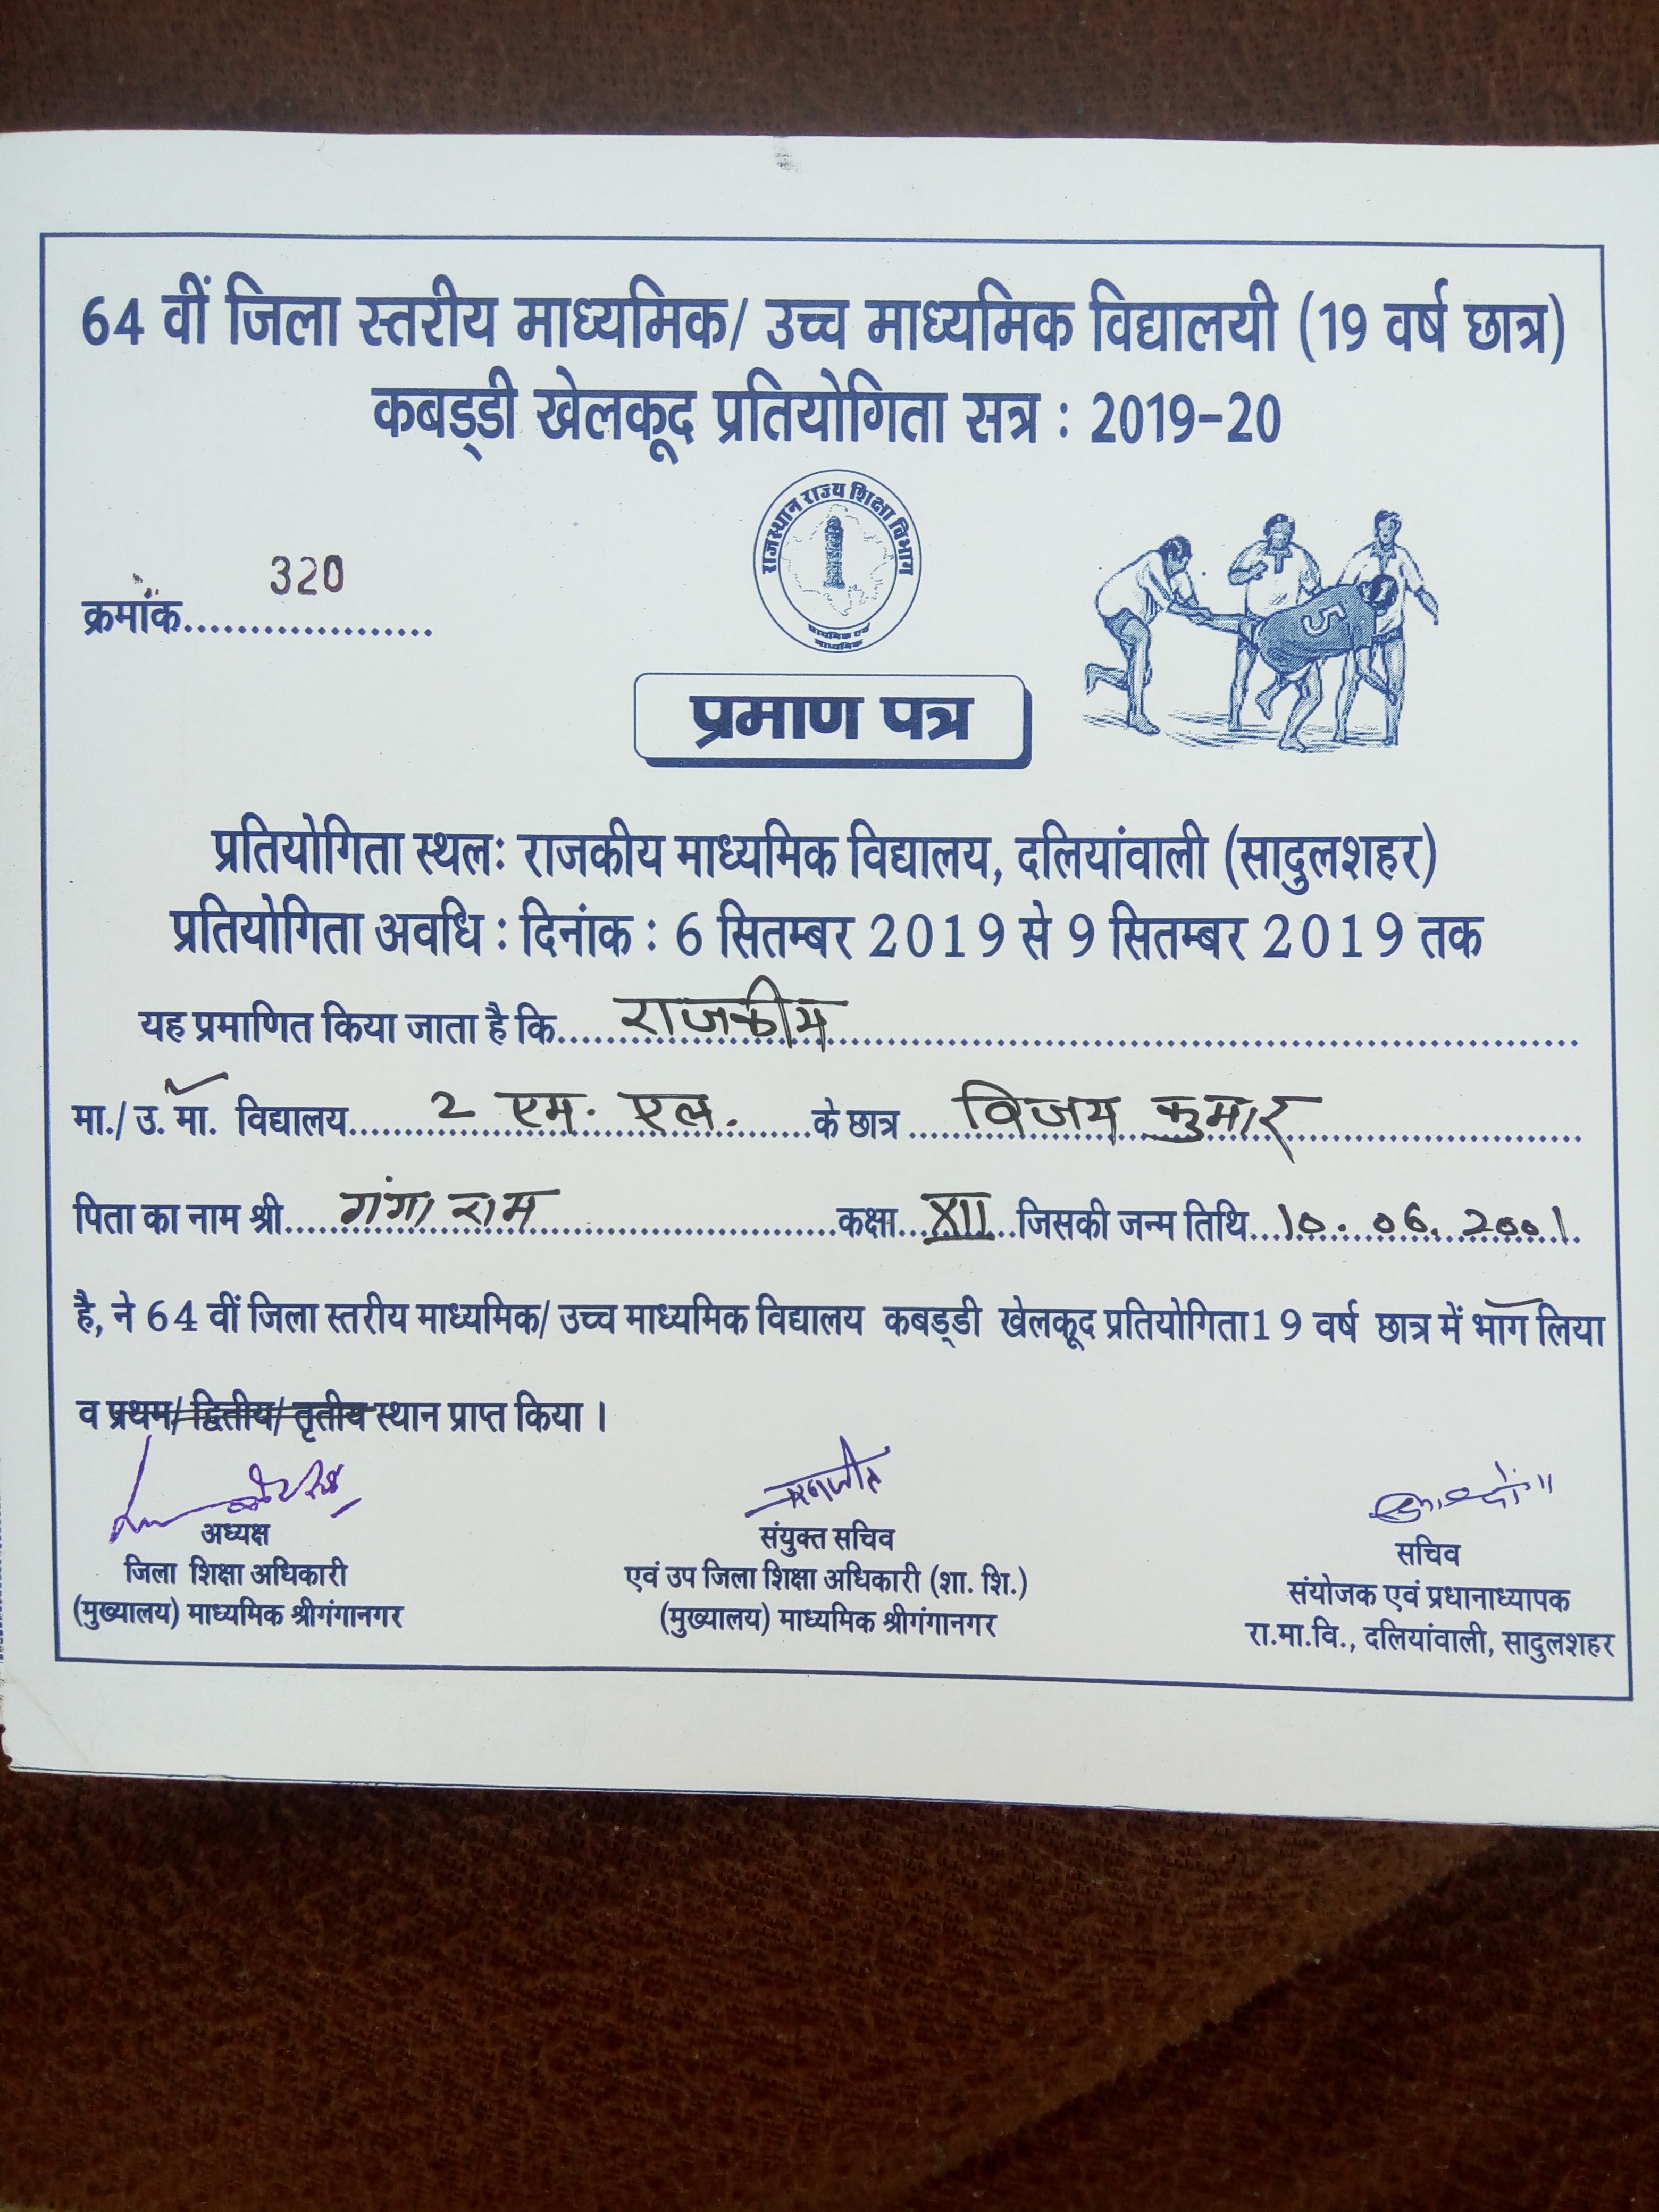 64 वीं जिला स्तरीय माध्यमिक/ उच्च माध्यमिक विद्यालयी (19 वर्ष छात्र)
कबड्डी खेलकूद प्रतियोगिता सत्र : 2019-20
राजस्थान राज्य शिक्षा विभाग
प्राथमिक एवं
माध्यमिक
320
क्रमांक...................
5
प्रमाण पत्र
प्रतियोगिता स्थलः राजकीय माध्यमिक विद्यालय, दलियांवाली (सादुलशहर)
प्रतियोगिता अवधि : दिनांक : 6 सितम्बर 2019 से 9 सितम्बर 2019 तक
यह प्रमाणित किया जाता है कि.....राजकीय..........
मा./ उ. मा. विद्यालय.....2 एम. एल......के छात्र.....विजय कुमार.....
पिता का नाम श्री.....गंगा राम.....कक्षा...XII...जिसकी जन्म तिथि...10.06.2001...
है, ने 64 वीं जिला स्तरीय माध्यमिक/ उच्च माध्यमिक विद्यालय कबड्डी खेलकूद प्रतियोगिता19 वर्ष छात्र में भाग लिया
व प्रथम/ द्वितीय/ तृतीय स्थान प्राप्त किया ।
अध्यक्ष
जिला शिक्षा अधिकारी
(मुख्यालय) माध्यमिक श्रीगंगानगर
संयुक्त सचिव
एवं उप जिला शिक्षा अधिकारी (शा. शि.)
(मुख्यालय) माध्यमिक श्रीगंगानगर
सचिव
संयोजक एवं प्रधानाध्यापक
रा.मा.वि., दलियांवाली, सादुलशहर